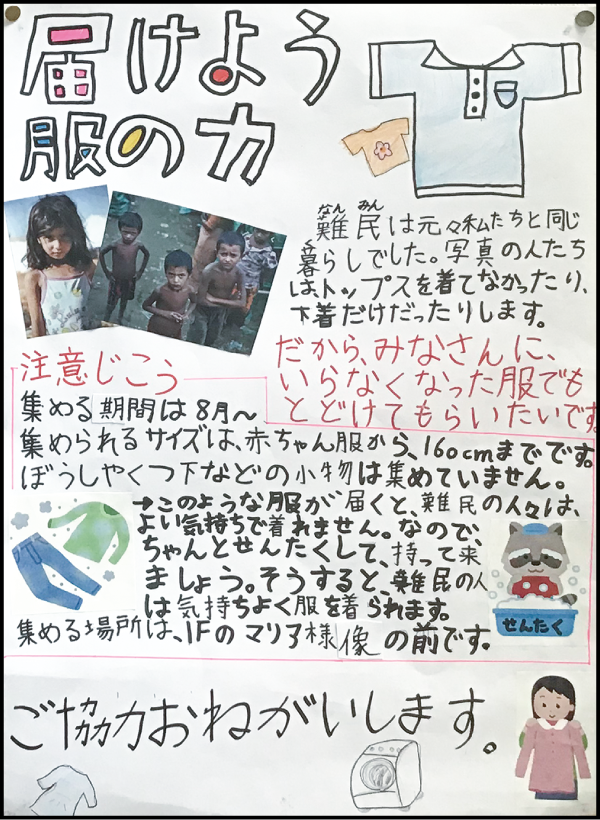 届けよう
服の力
なんみん
難民は元々私たちと同じ
暮らしでした。写真の人たち
は、トップスを着てなかったり、
下着だけだったりします。
だから、みなさんに、
いらなくなった服でも
とどけてもらいたいです
注意じこう
集める期間は8月〜
集められるサイズは、赤ちゃん服から、160cmまでです。
ぼうしやくつ下などの小物は集めていません。
→このような服が届くと、難民の人々は、
よい気持ちで着れません。なので、
ちゃんとせんたくして、持って来
ましょう。そうすると、難民の人
は気持ちよく服を着られます。
せんたく
集める場所は、1Fのマリア様像の前です。
ご協力おねがいします。